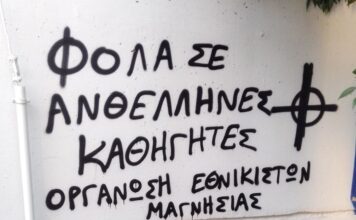 ΦΟΛΑ ΣΕ
ΑΝΘΕΛΛΗΝΕΣ
ΚΑΘΗΓΗΤΕΣ
ΟΡΓΑΝΩΣΗ ΕΘΝΙΚΙΣΤΩΝ
ΜΑΓΝΗΣΙΑΣ